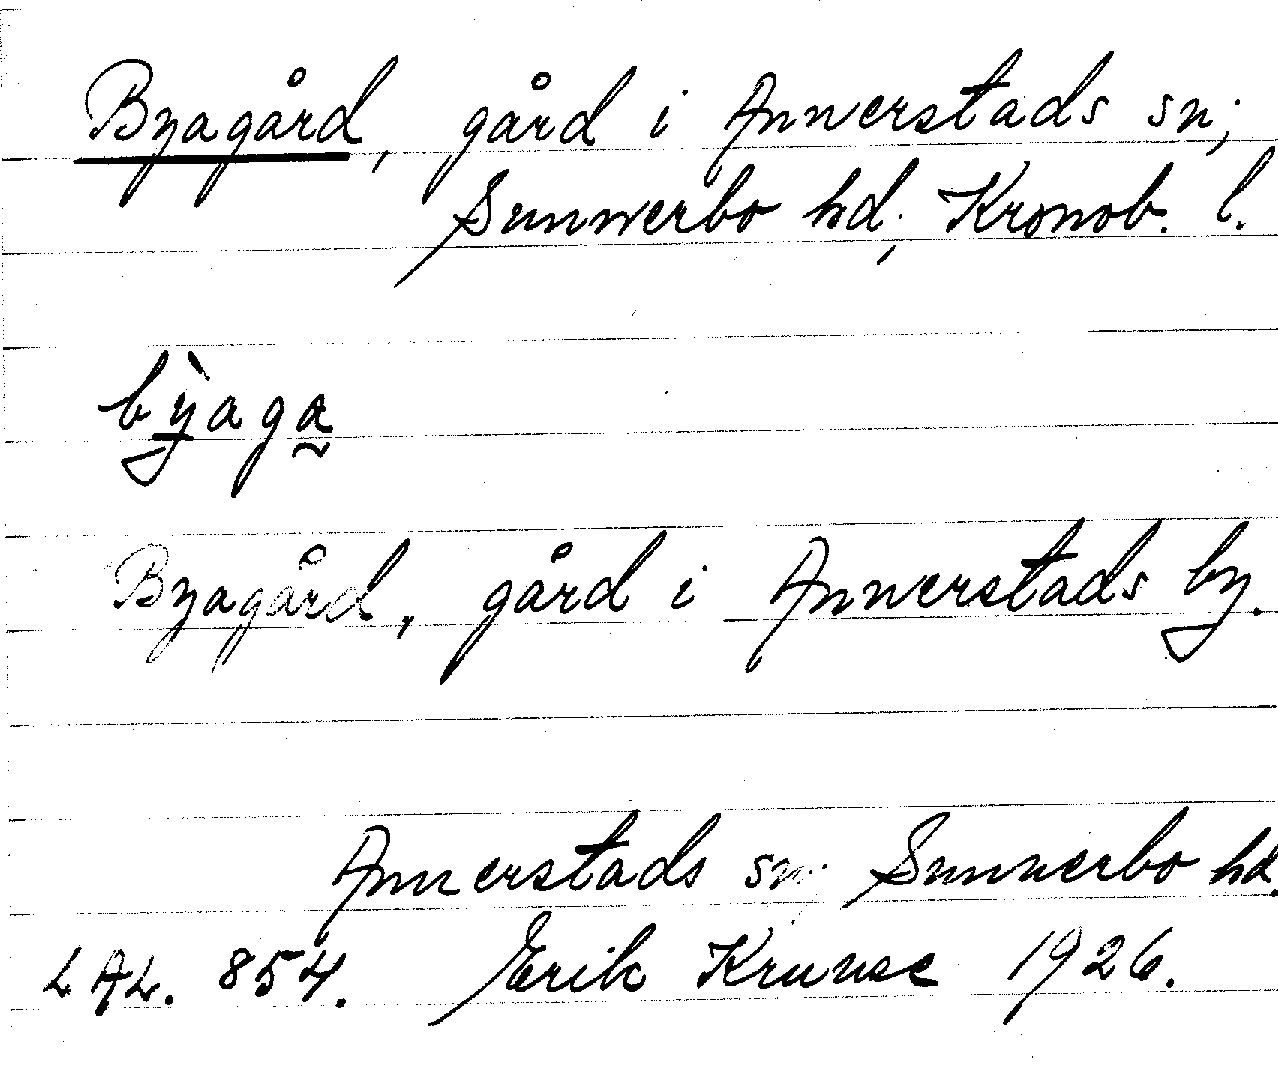 Byagård, gård i Annerstads sn;
Sunnerbo hd; Kronob. l.
bỳaga
Byagård, gård i Annerstads by.
Annerstads sn; Sunnerbo hd.
LAL. 854. Erik Kruuse 1926.